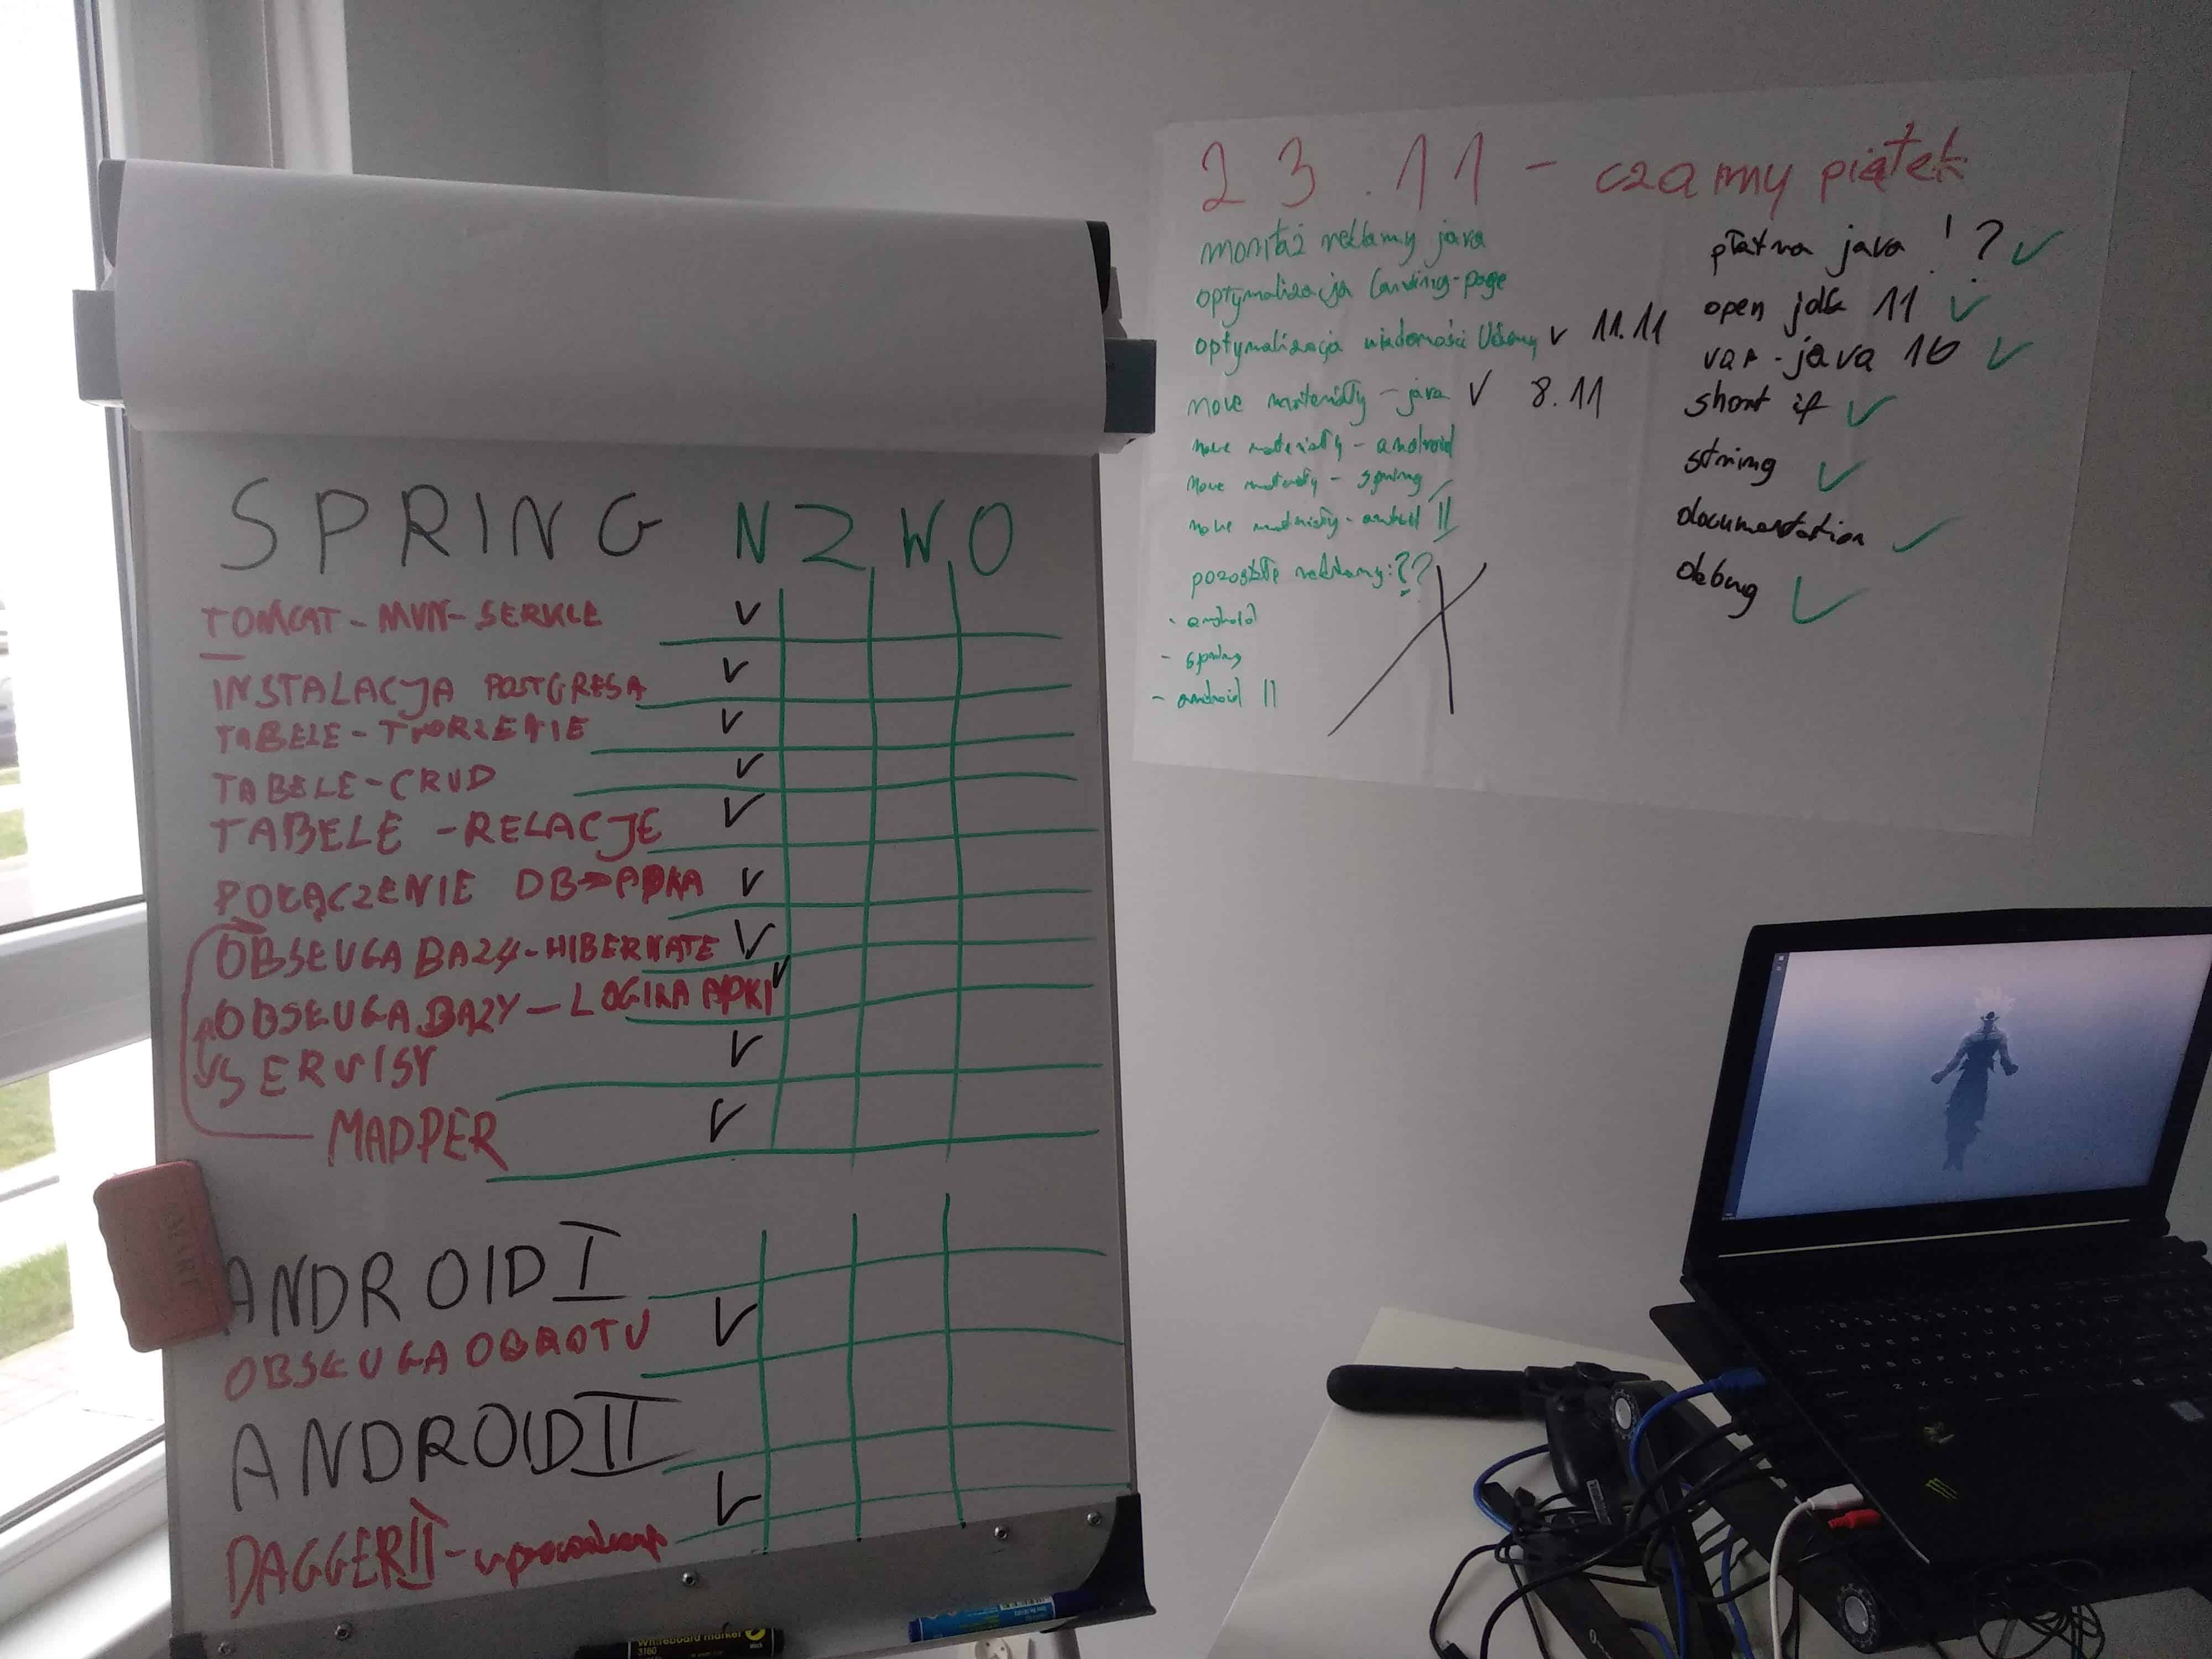 SPRING N Z W O
TOMCAT - MVN - SERVLE
INSTALACJA POSTGRESA
TABELE - TWORZENIE
TABELE - CRUD
TABELE - RELACJE
POŁĄCZENIE DB → APKA
OBSŁUGA BAZY - HIBERNATE
OBSŁUGA BAZY - LOGIKA APKI
SERVISY
MAPPER
ANDROID I
OBSŁUGA OBROTU
ANDROID II
DAGGER II -
SMART
Whiteboard marker
3160
23.11 - czarny piątek
montaż reklamy java
optymalizacja landing-page
optymalizacja wiadomości Udemy v 11.11
nowe materiały - java v 8.11
nowe materiały - android
nowe materiały - spring
nowe materiały - android II
pozostałe reklamy: ??
- android
- spring
- android II
płatna java !?
open jdk 11
var - java 10
short if
string
documentation
debug